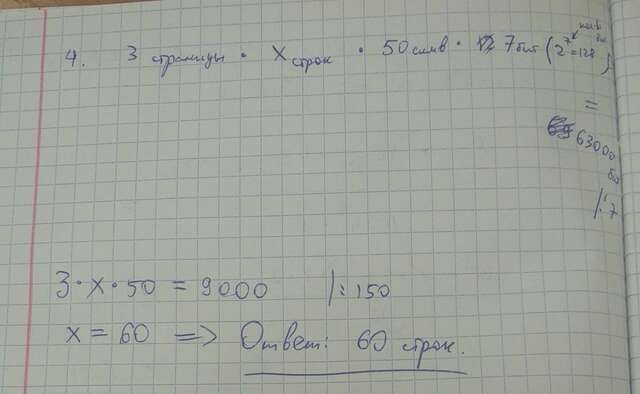 4. 3 страницы · x строк · 50 симв · 7 бит (2⁷ = 128)
=
63000
бит
|:7
3·x·50 = 9000 |:150
x = 60 => Ответ: 60 строк.